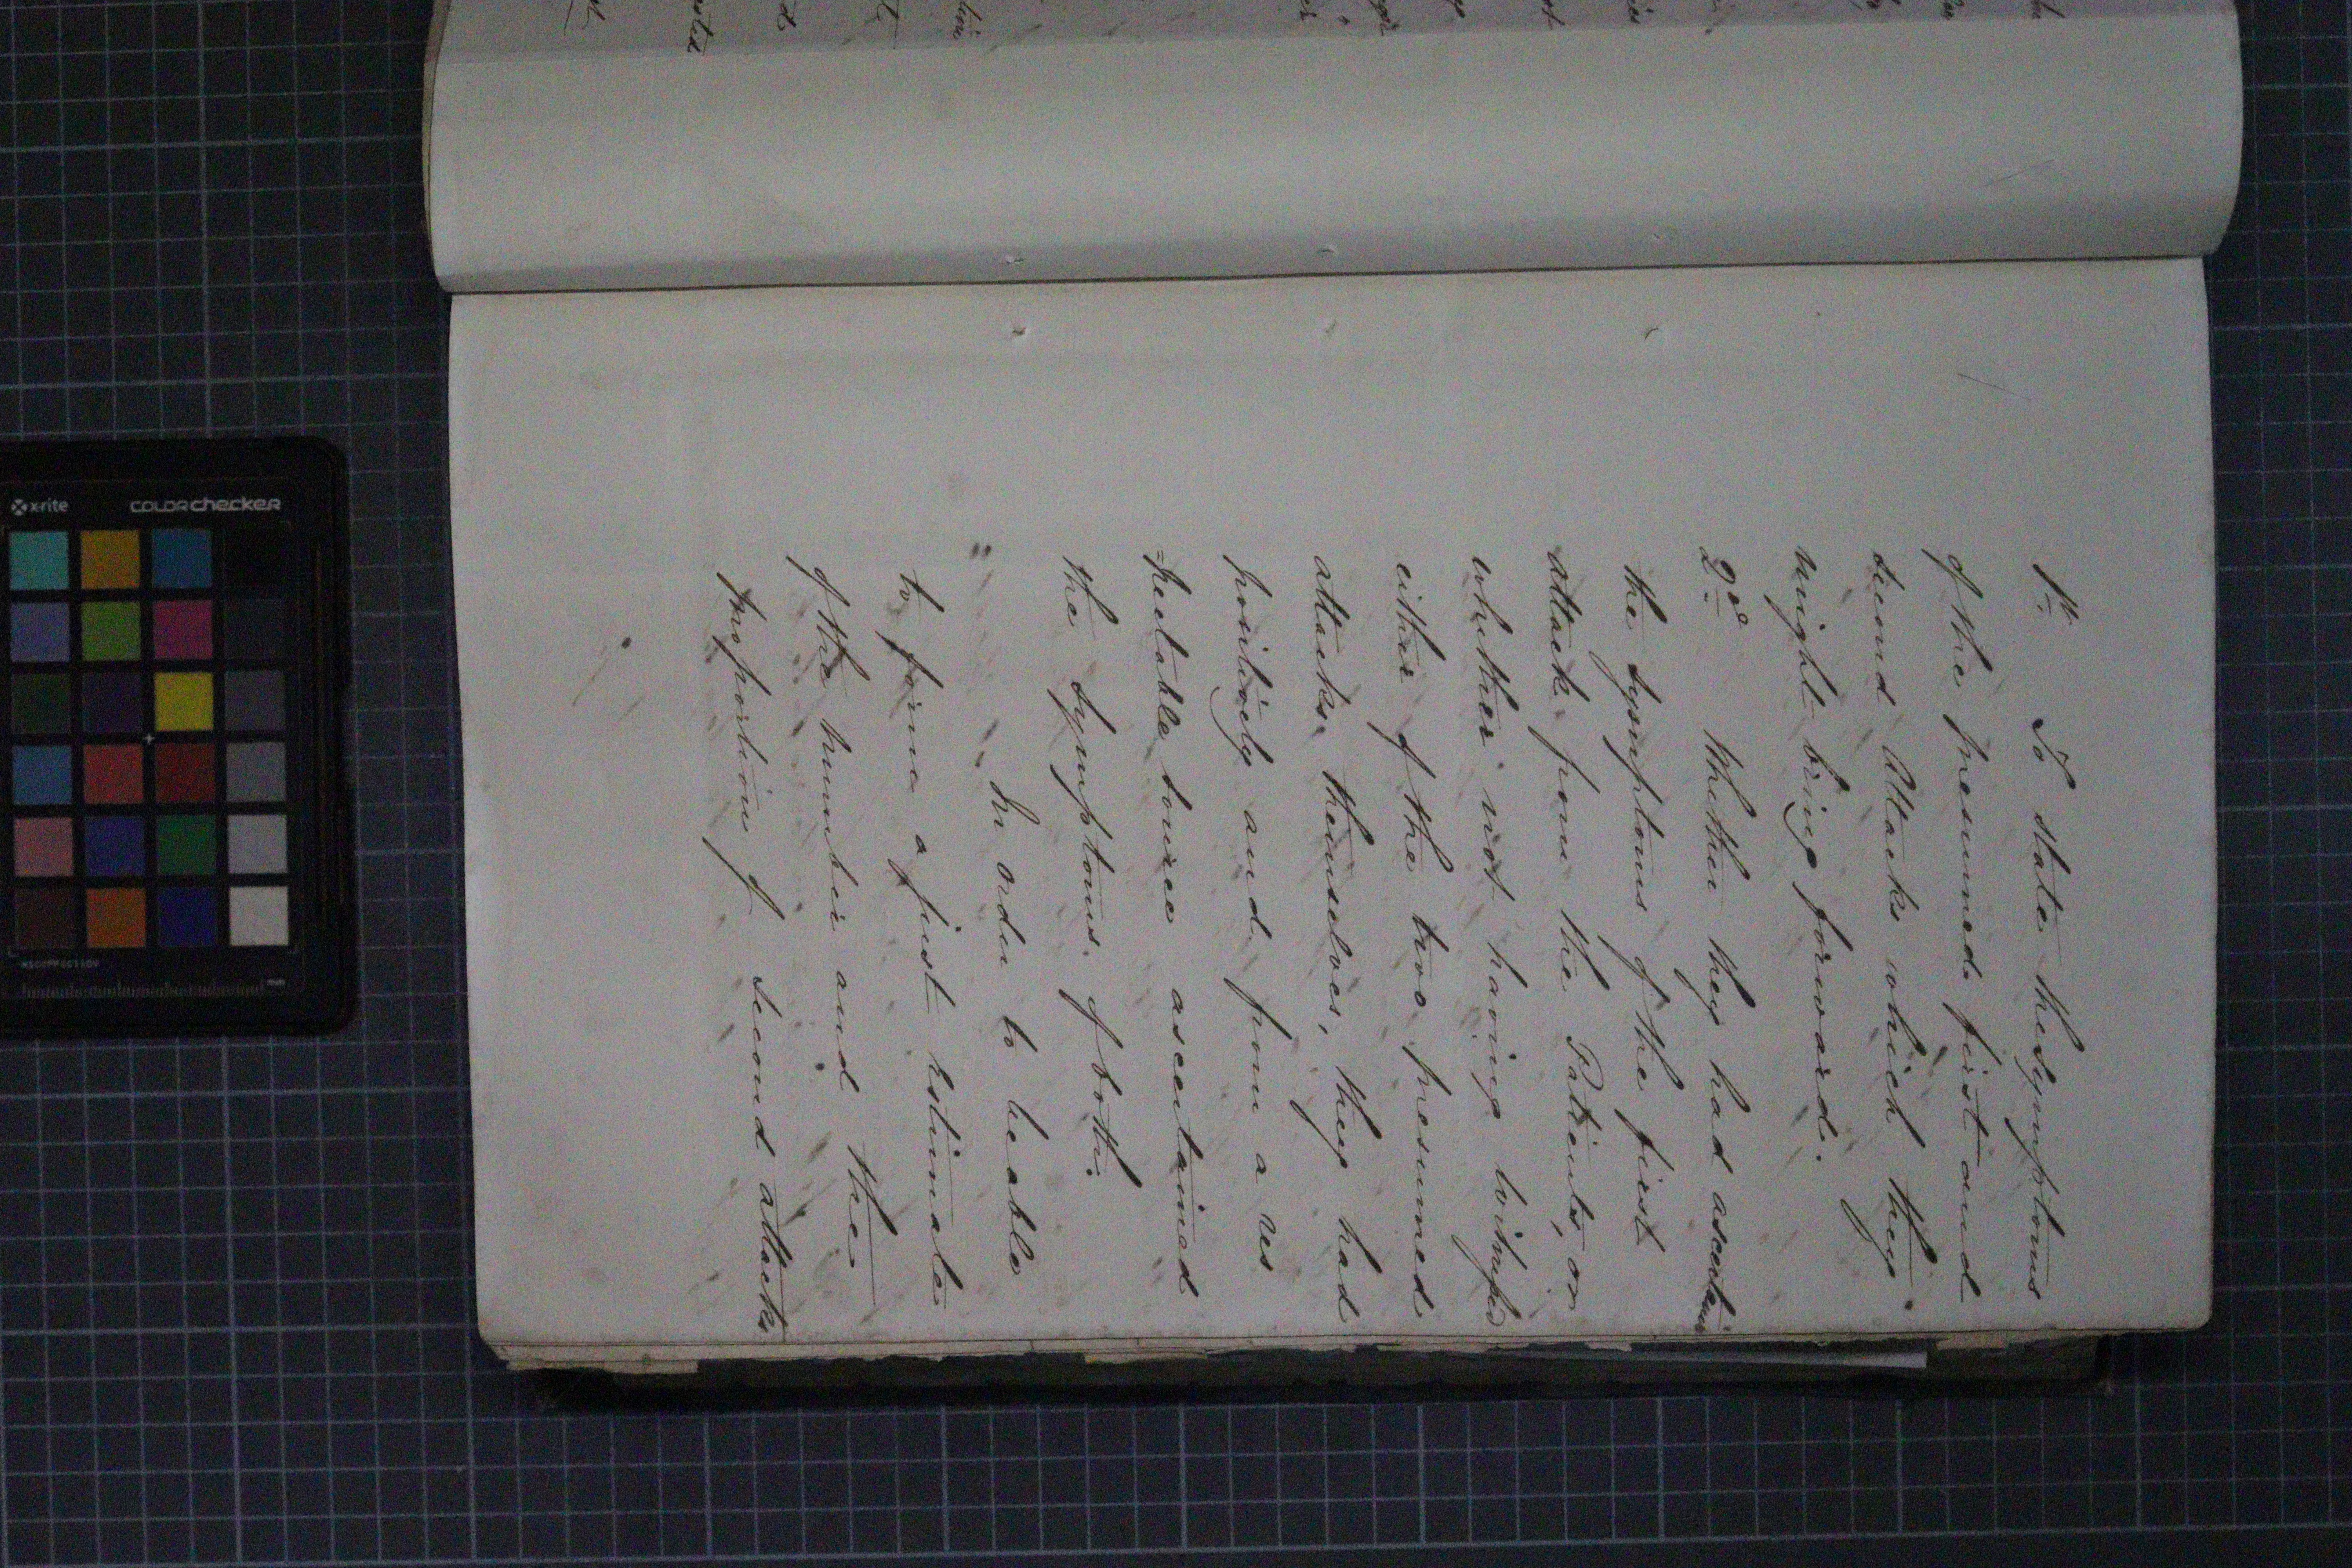 1st. To state the symptoms
of the presumed first and
second Attacks which they
might bring forward.
2nd. Whether they had ascertained
the symptoms of the first
attack from the Patients, or
whether not having witnessed
either of the two presumed
attacks themselves, they had
positively and from a res
=pectable source ascertained
the symptoms of both.
" In order to be able
to form a just estimate
of the number and the
proportion of second attacks
x-rite colorchecker
mm